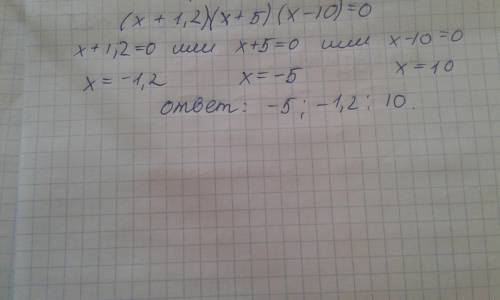 (x + 1,2)(x+5)(x-10)=0
x+1,2=0 или x+5=0 или x-10=0
x=-1,2 x=-5 x=10
ответ: -5; -1,2; 10.